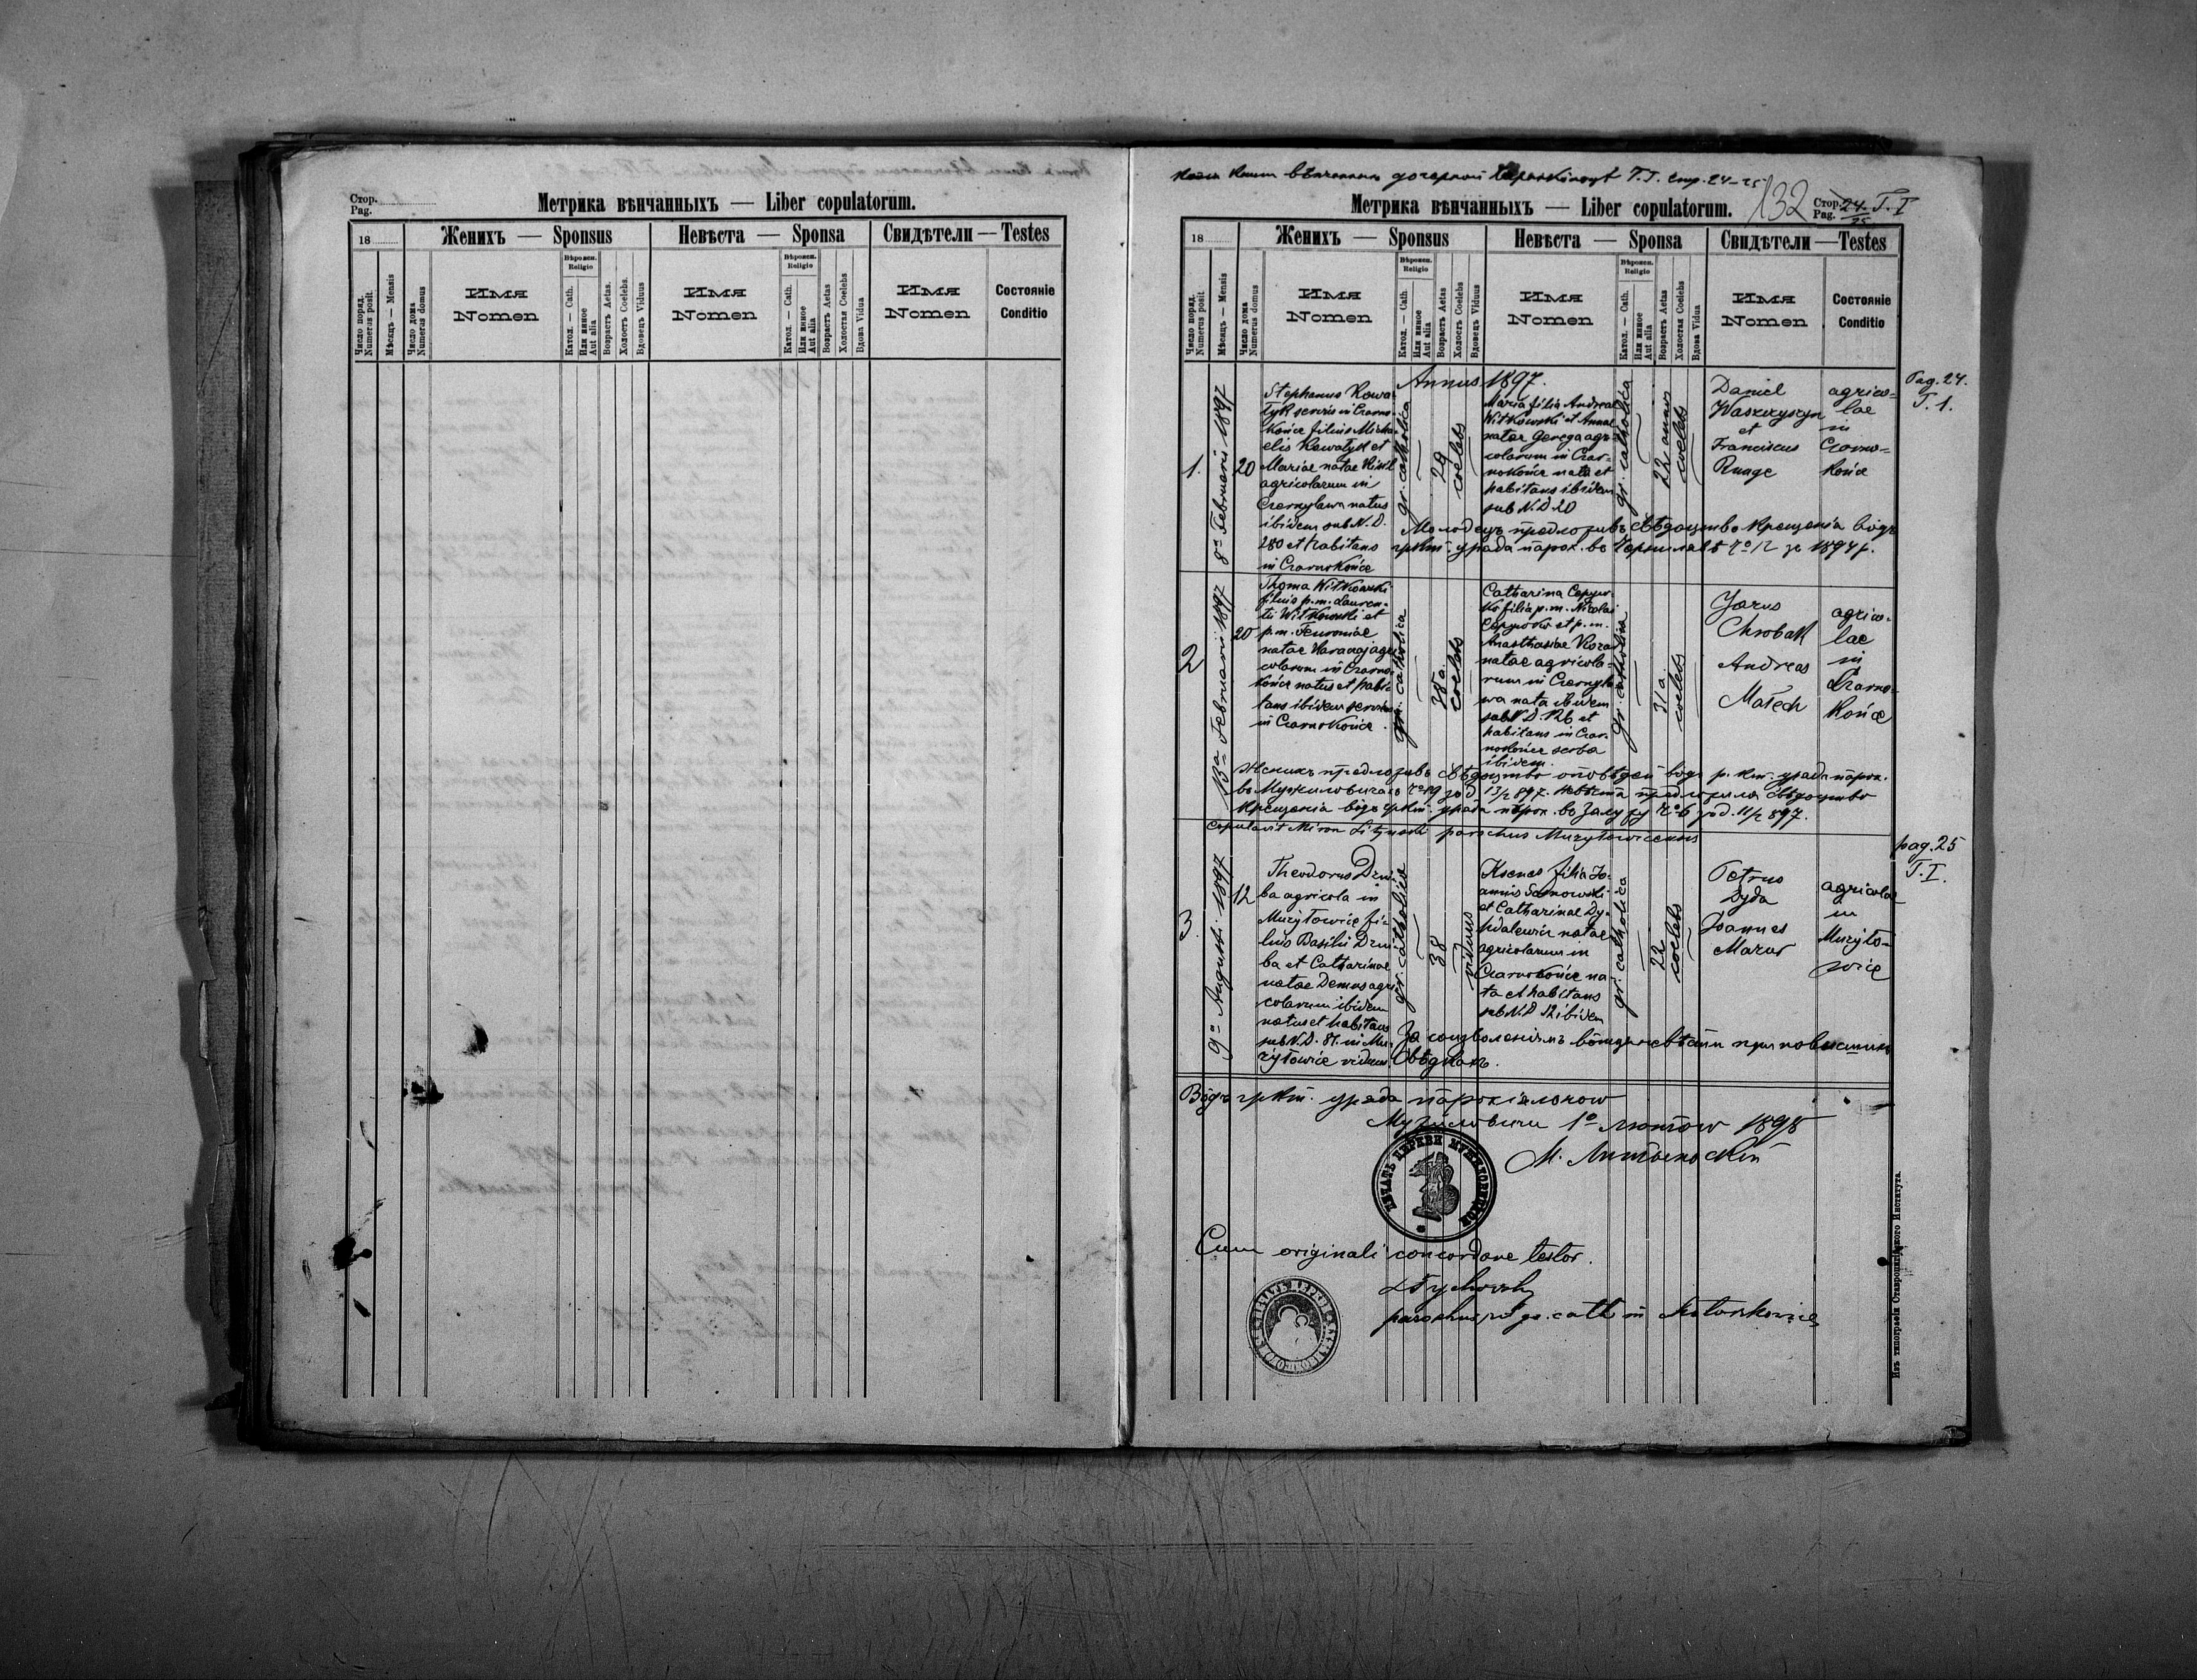 Стор.
Pag.
Метрика вѣнчанныхъ — Liber copulatorum.
18
Женихъ — Sponsus
Невѣста — Sponsa
Свидѣтели — Testes
Число поряд.
Numerus posit.
Мѣсяцъ — Mensis
Число дома
Numerus domus
Имя
Nomen
Вѣроисп.
Religio
Катол. — Cath.
Или инное
Aut alia
Возрастъ Aetas.
Холостъ Coelebs.
Вдовец Viduus
Имя
Nomen
Вѣроисп.
Religio
Катол. — Cath.
Или инное
Aut alia
Возрастъ Aetas
Холостая Coelebs
Вдова Vidua
Имя
Nomen
Состояніе
Conditio
вѣнчанныхъ дочерной Т.I. стр. 24-25
Метрика вѣнчанныхъ — Liber copulatorum.
132
Стор.
Pag.
24 T. I
25
18
Женихъ — Sponsus
Невѣста — Sponsa
Свидѣтели — Testes
Число поряд.
Numerus posit.
Мѣсяцъ — Mensis
Число дома
Numerus domus
Имя
Nomen
Вѣроисп.
Religio
Катол. — Cath.
Или инное
Aut alia
Возрастъ Aetas
Холостъ Coelebs
Вдовец Viduus
Имя
Nomen
Вѣроисп.
Religio
Катол. — Cath.
Или инное
Aut alia
Возрастъ Aetas
Холостая Coelebs
Вдова Vidua
Имя
Nomen
Состояніе
Conditio
Annus 1897.
Pag. 24.
T. 1.
1.
8ª Februarii 1897
20
Stephanus Kowa-
łyk servus in Czarno-
końce filius Micha-
elis Kowałyk et
Mariae natae
agricolarum in
Czernylawa natus
ibidem sub N.D.
280 et habitans
in Czarnokońce
gr. catholica
29
coelebs
Maria filia Andreae
Witkowski et Annae
natae Gerega agri-
colarum in Czar-
nokońce nata et
habitans ibidem
sub N.D 20
gr. catholica
22 annus
coelebs
Daniel
Waszczyszyn
et
Franciscus
Runge
agrico-
lae
in
Czarno-
końce
Молодецъ предложивъ свѣдоцтво крещенія вôдъ
гркт. уряда парох. въ Чернилавѣ Чо 12 зъ 1897 р.
2
13ª Februarii 1897
20
Thoma Witkowski
filius p.m. Lauren-
tii Witkowski et
p.m. Feuroniae
natae Haraaj agri-
colarum in Czarno-
końce natus et habi-
tans ibidem servus
in Czarnokońce
gr. catholica
38 a.
coelebs
Catharina
filia p.m. Nicolai
et p.m.
Anasthasiae Koza
natae agricola-
rum in Czernyla-
wa nata ibidem
sub N.D. 126 et
habitans in Czar-
nokońce serva
ibidem.
gr. catholica
31 a.
coelebs
Jarus
Chrobak
Andreas
Małech
agrico-
lae
in
Czarno-
końce
Женихъ предложивъ свѣдоцтво оповѣдей вôдъ р. кт. уряда парох.
въ Мужиловичахъ Чо 19 зъ д. 13/2 897. невѣста предложила свѣдоцтво
крещенія вôдъ гркт. уряда парох. во Залу Чо 6 зъ д. 11/2 897.
copulavit Miron Lityński parochus Mużyłowicensis
pag. 25
T. I.
3.
9ª Augusti 1897
12
Theodorus Dziu-
ba agricola in
Mużyłowice fi-
lius Basilii Dziu-
ba et Catharinae
natae Demus agri-
colarum ibidem
natus et habitans
sub N.D. 81. in Mu-
żyłowice viduus
gr. catholica
38
viduus
Ksenes filia Jo-
annis Sosnowski
et Catharinae Dy-
hdalewicz natae
agricolarum in
Czarnokońce na-
ta et habitans
sub N.D 12 ibidem
gr. catholica
22
coelebs
Petrus
Dyda
Joannes
Mazur
agricolae
in
Mużyło-
wice
За соизволеніемъ вôтця невѣсты при
свѣдкахъ.
Вôдъ гркт. уряда парохіяльного
Мужиловичи 1º лютого 1898
М. Литынскій
ПЕЧАТЬ ЦЕРКВИ
Cum originali concordare testor.
parochus gr. cath in
Изъ типографіи Ставропигійского Института.